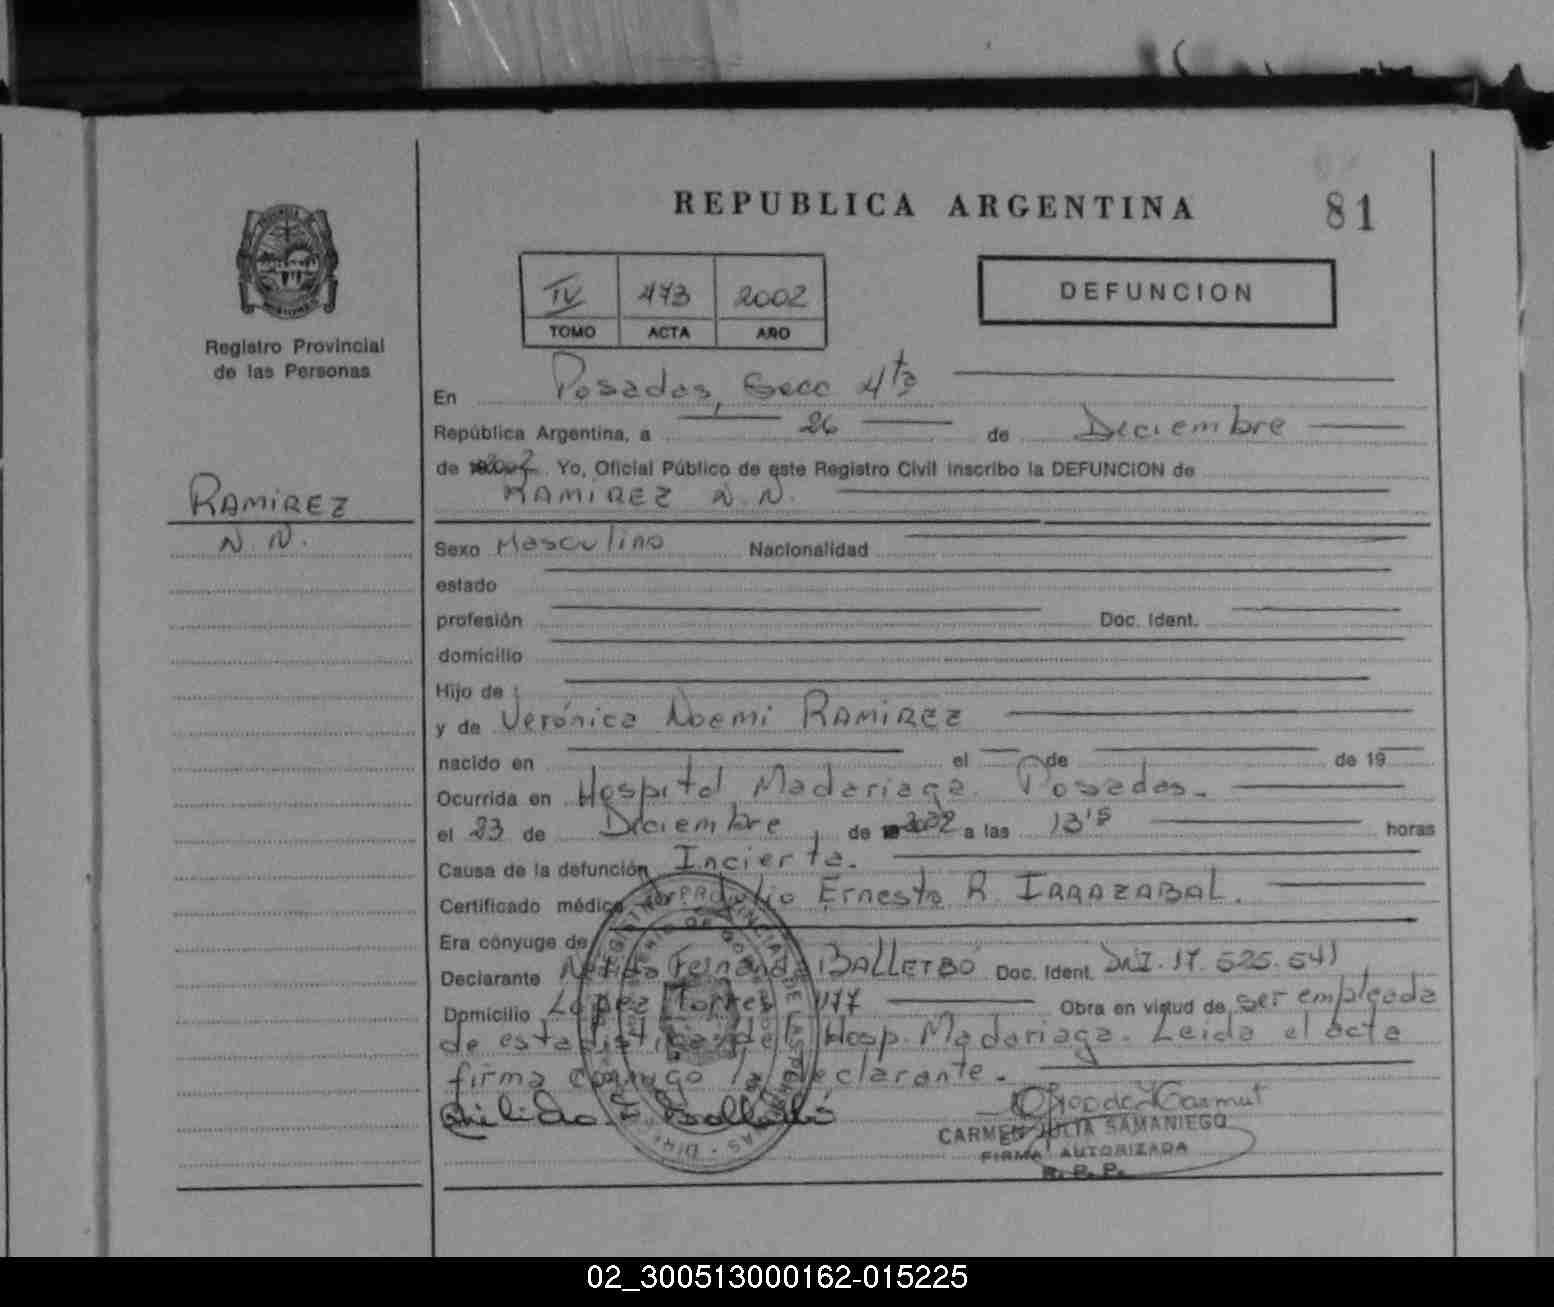 REPUBLICA ARGENTINA
81
IV 473 2002
TOMO ACTA AÑO
DEFUNCION
Registro Provincial
de las Personas
RAMIREZ
N. N.
En Posadas, Secc 4ta
República Argentina, a 26 de Diciembre
de 2002 Yo, Oficial Público de este Registro Civil inscribo la DEFUNCION de
RAMIREZ N. N.
Sexo Masculino Nacionalidad
estado
profesión Doc. Ident.
domicilio
Hijo de
y de Verónica Noemi RAMIREZ
nacido en el de de 19
Ocurrida en Hospital Madariaga. Posadas.
el 23 de Diciembre de 2002 a las 13'5 horas
Causa de la defunción Incierta.
Certificado médico Julio Ernesto R. IRRAZABAL.
Era cónyuge de
Declarante Fernanda BALLERBÓ Doc. Ident. DNI. 17.525.541
Domicilio López Torres Obra en virtud de ser empleada
de estadística de Hosp. Madariaga. Leida el acta
firma conmigo la declarante.
CARMEN JULIA SAMANIEGO
FIRMA AUTORIZADA
R. P. P.
02_300513000162-015225